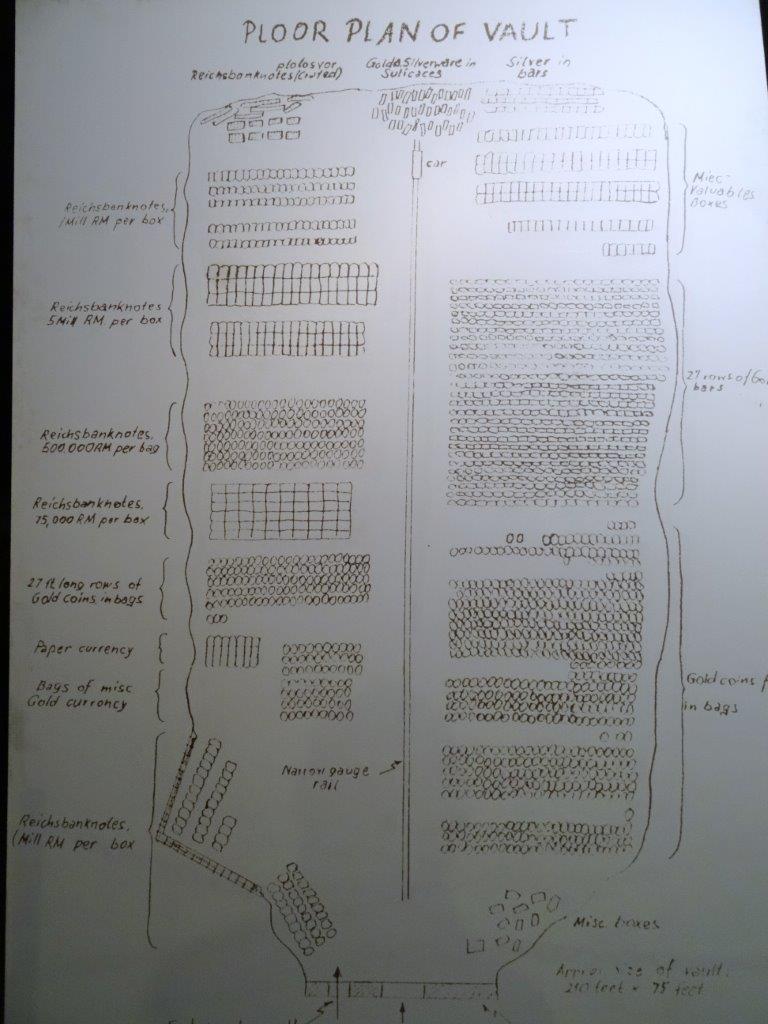 PLOOR PLAN OF VAULT
plolosvor
Reichsbanknotes (Crated)
Gold & Silverware in
Suticaces
Silver in
bars
car
Reichsbanknotes,
1Mill RM per box
Reichsbanknotes
5Mill RM per box
Reichsbanknotes,
500,000RM per bag
Reichsbanknotes,
75,000 RM per box
27 ft long rows of
Gold Coins in bags
Paper currency
Bags of misc
Gold currency
Reichsbanknotes,
(Mill RM per box
Narrow gauge
rail
Miec-
Valuables
Boxes
27 rows of Go
bars
Gold coins
in bags
Misc. boxes
size of vault:
75 feet